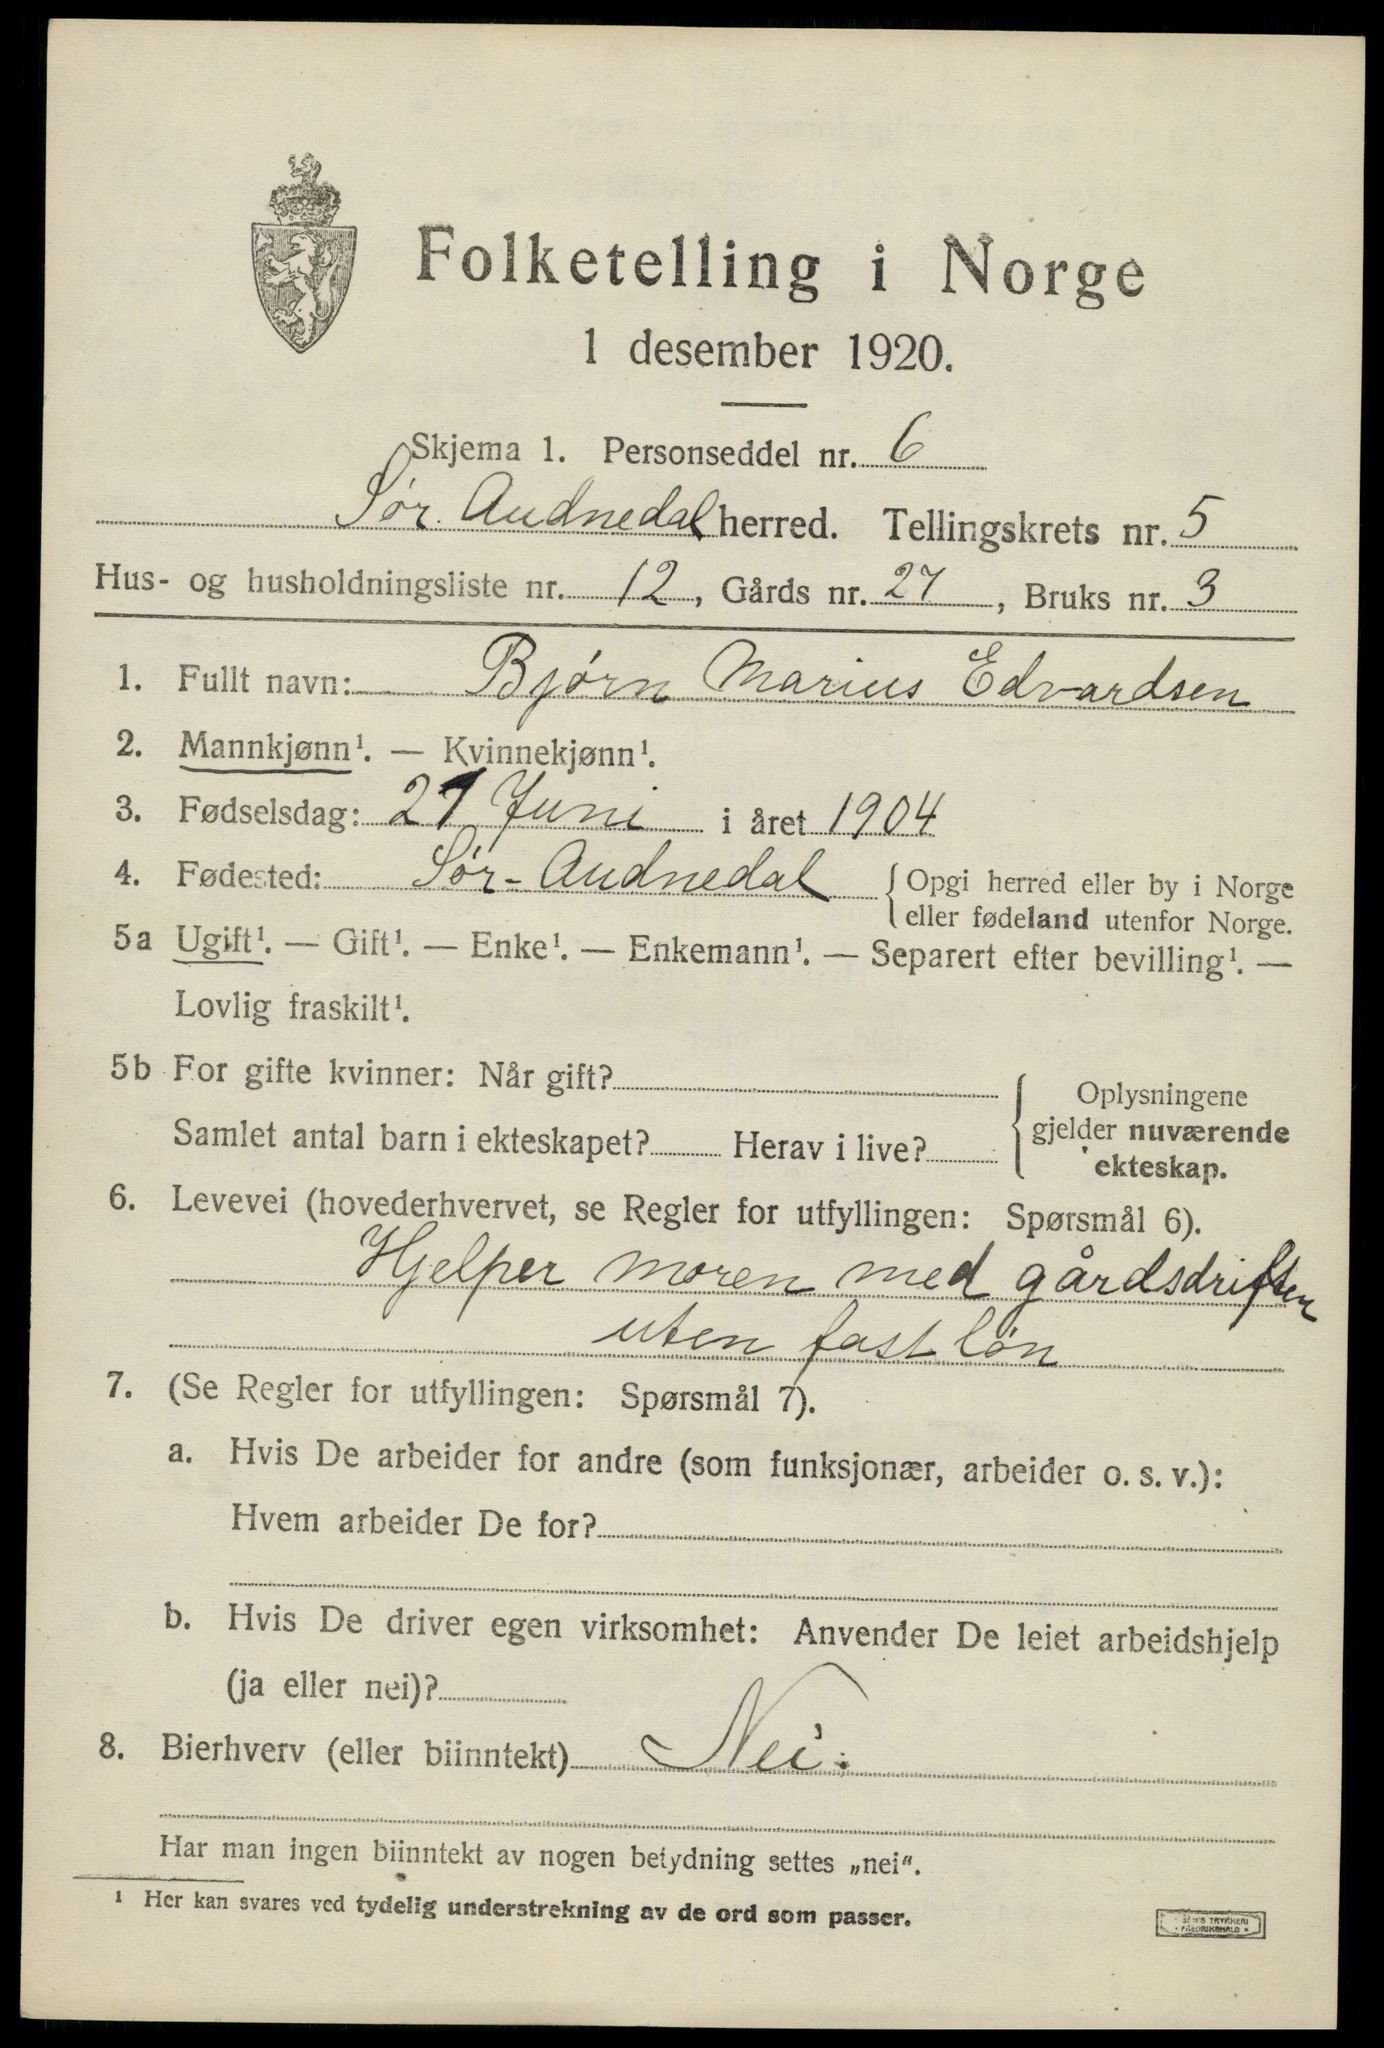 Folketelling i Norge
1 desember 1920.
Skjema 1. Personseddel nr. 6
Sør. Audnedal herred. Tellingskrets nr. 5
Hus- og husholdningsliste nr. 12, Gårds nr. 27, Bruks nr. 3
1. Fullt navn: Bjørn Marius Edvardsen
2. Mannkjønn¹. — Kvinnekjønn¹.
3. Fødselsdag: 27 Juni i året 1904
4. Fødested: Sør-Audnedal { Opgi herred eller by i Norge
eller fødeland utenfor Norge.
5a Ugift¹. — Gift¹. — Enke¹. — Enkemann¹. — Separert efter bevilling¹. —
Lovlig fraskilt¹.
5b For gifte kvinner: Når gift?
Samlet antal barn i ekteskapet? Herav i live?
{ Oplysningene
gjelder nuværende
ekteskap.
6. Levevei (hovederhvervet, se Regler for utfyllingen: Spørsmål 6).
Hjelper moren med gårdsdriften
uten fast løn
7. (Se Regler for utfyllingen: Spørsmål 7).
a. Hvis De arbeider for andre (som funksjonær, arbeider o. s. v.):
Hvem arbeider De for?
b. Hvis De driver egen virksomhet: Anvender De leiet arbeidshjelp
(ja eller nei)?
8. Bierhverv (eller biinntekt) Nei.
Har man ingen biinntekt av nogen betydning settes „nei“.
¹ Her kan svares ved tydelig understrekning av de ord som passer.
TRYKKERI
FREDRIKSHALD